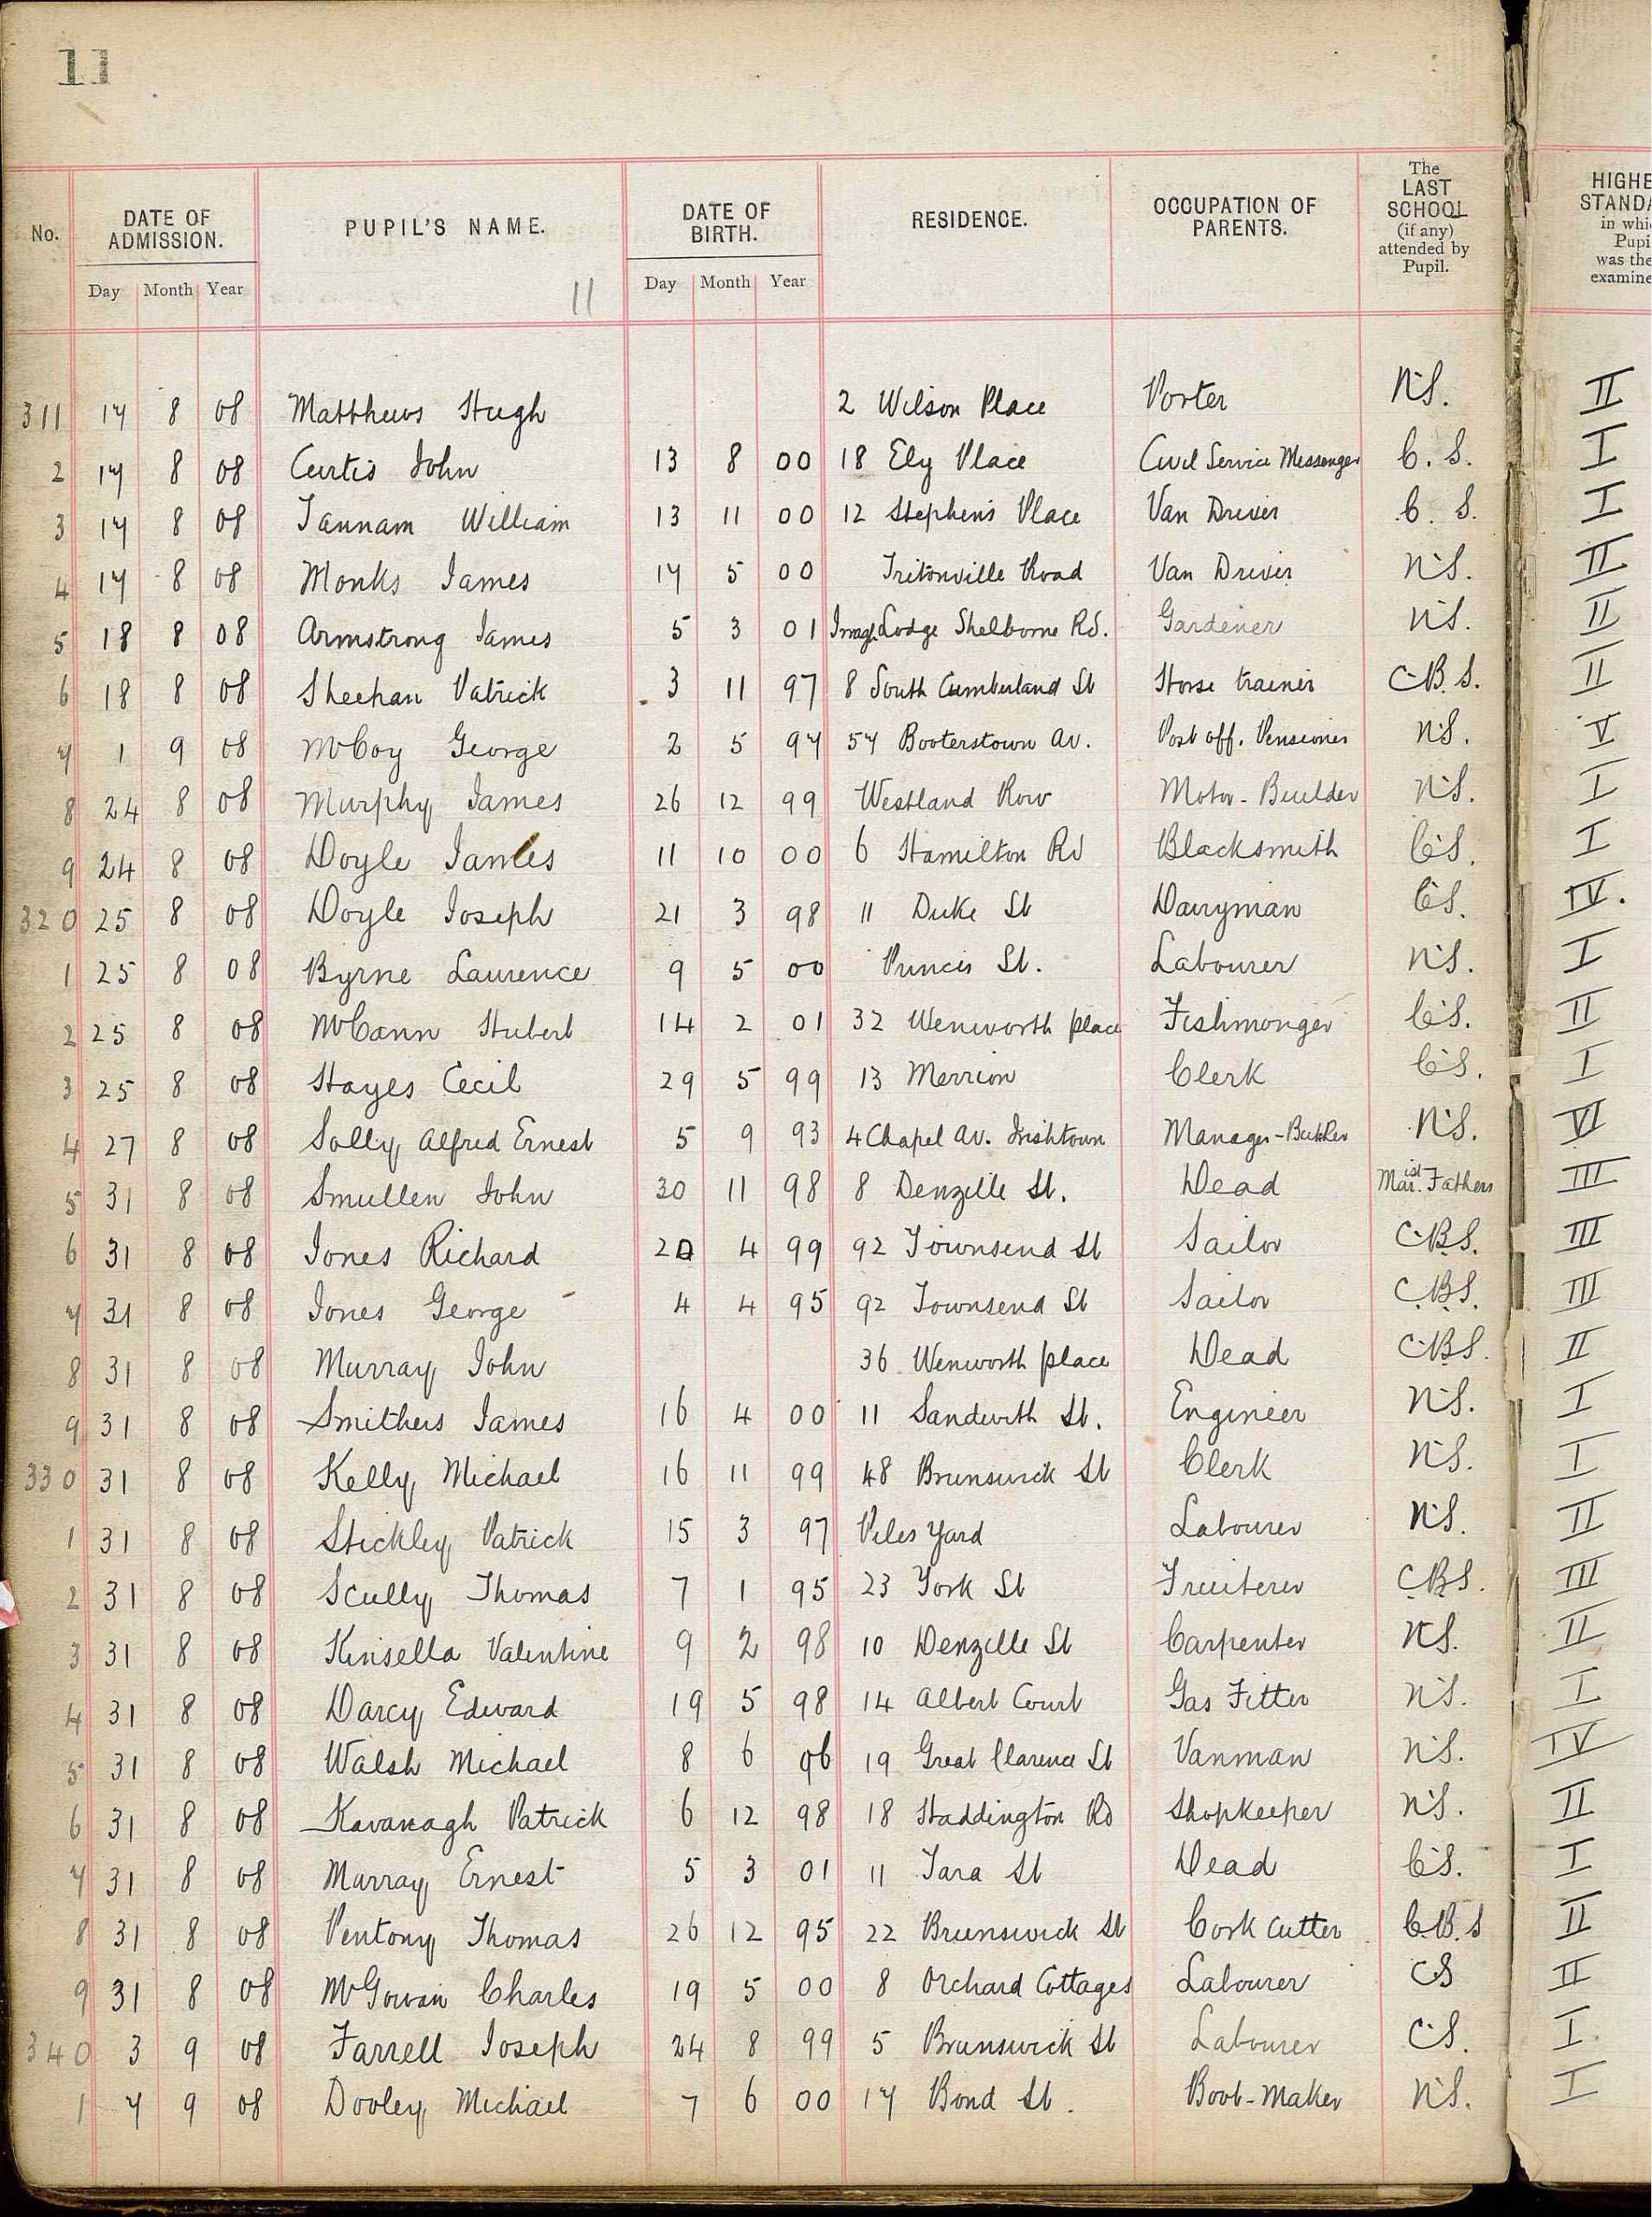 11
No. DATE OF ADMISSION. PUPIL'S NAME. DATE OF BIRTH. RESIDENCE. OCCUPATION OF PARENTS. The LAST SCHOOL (if any) attended by Pupil. HIGHE STANDA in whi Pupi was the examine
Day Month Year 11 Day Month Year
311 17 8 08 Matthews Hugh 2 Wilson Place Porter N.S. II
2 17 8 08 Curtis John 13 8 00 18 Ely Place Civil Service Messenger C.S. I
3 17 8 08 Tannam William 13 11 00 12 Stephens Place Van Driver C.S. I
4 17 8 08 Monks James 17 5 00 Tritonville Road Van Driver N.S. II
5 18 8 08 Armstrong James 5 3 01 Lodge Shelborne Rd. Gardener N.S. II
6 18 8 08 Sheehan Patrick 3 11 97 8 South Cumberland St Horse trainer C.B.S. II
7 1 9 08 McCoy George 2 5 97 57 Booterstown Av. Post off. Pensioner N.S. V
8 24 8 08 Murphy James 26 12 99 Westland Row Motor-Builder N.S. I
9 24 8 08 Doyle James 11 10 00 6 Hamilton Rd Blacksmith C.S. I
320 25 8 08 Doyle Joseph 21 3 98 11 Duke St Dairyman C.S. IV.
1 25 8 08 Byrne Laurence 9 5 00 Princes St. Labourer N.S. I
2 25 8 08 McCann Hubert 14 2 01 32 Wenworth place Fishmonger C.S. II
3 25 8 08 Hayes Cecil 29 5 99 13 Merrion Clerk C.S. I
4 27 8 08 Solly Alfred Ernest 5 9 93 4 Chapel Av. Irishtown Manager-Butcher N.S. VI
5 31 8 08 Smullen John 30 11 98 8 Denzille St. Dead Marist Fathers III
6 31 8 08 Jones Richard 20 4 99 92 Townsend St Sailor C.B.S. III
7 31 8 08 Jones George 4 4 95 92 Townsend St Sailor C.B.S. III
8 31 8 08 Murray John 36 Wenworth place Dead C.B.S. II
9 31 8 08 Smithers James 16 4 00 11 Sandwith St. Engineer N.S. I
330 31 8 08 Kelly Michael 16 11 99 48 Brunswick St Clerk N.S. I
1 31 8 08 Stickley Patrick 15 3 97 Piles Yard Labourer N.S. II
2 31 8 08 Scully Thomas 7 1 95 23 York St Fruiterer C.B.S. III
3 31 8 08 Kinsella Valentine 9 2 98 10 Denzille St Carpenter N.S. II
4 31 8 08 Darcy Edward 19 5 98 14 Albert Court Gas Fitter N.S. I
5 31 8 08 Walsh Michael 8 6 96 19 Great Clarence St Vanman N.S. IV
6 31 8 08 Kavanagh Patrick 6 12 98 18 Haddington Rd Shopkeeper N.S. II
7 31 8 08 Murray Ernest 5 3 01 11 Tara St Dead C.S. I
8 31 8 08 Pentony Thomas 26 12 95 22 Brunswick St Cork Cutter C.B.S II
9 31 8 08 McGowan Charles 19 5 00 8 Orchard Cottages Labourer CS II
340 3 9 08 Farrell Joseph 24 8 99 5 Brunswick St Labourer C.S. I.
1 7 9 08 Dooley Michael 7 6 00 17 Bond St. Boot-Maker N.S. I